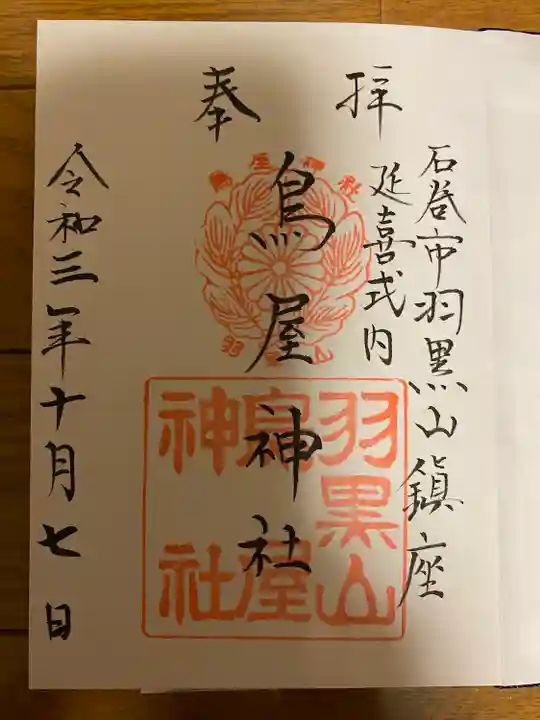 奉拝
石巻市羽黒山鎮座
延喜式内
鳥屋神社
令和三年十月七日
鳥屋神社
羽黒山
羽黒山
鳥屋
神社